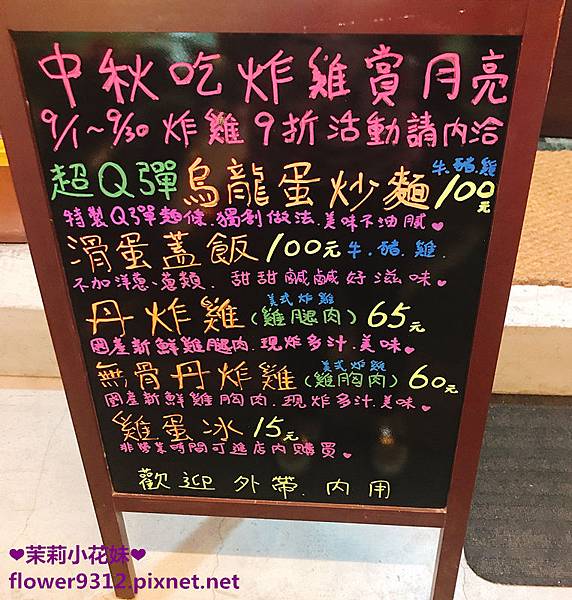 中秋吃炸雞賞月亮
9/1~9/30 炸雞9折活動請內洽
超Q彈烏龍蛋炒麵 牛.豬.雞 100元
特製Q彈麵條.獨創做法.美味不油膩♥
滑蛋蓋飯100元 牛.豬.雞.
不加洋蔥、蔥類. 甜甜鹹鹹好滋味♥
美式炸雞
丹炸雞(雞腿肉) 65元
國產新鮮雞腿肉.現炸多汁.美味♥
美式炸雞
無骨丹炸雞(雞胸肉) 60元
國產新鮮雞胸肉.現炸多汁.美味♥
雞蛋冰 15元
非營業時間可進店內購買♥
歡迎外帶.內用
♥茉莉小花妹♥
flower9312.pixnet.net